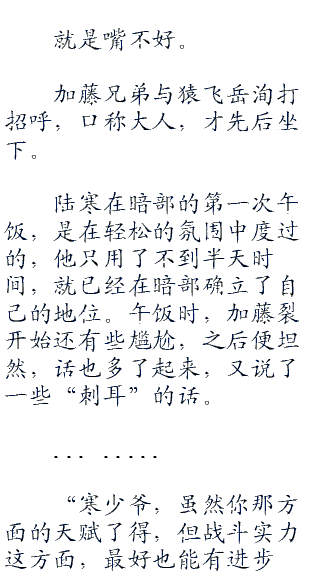 就是嘴不好。
加藤兄弟与猿飞岳洵打
招呼，口称大人，才先后坐
下。
陆寒在暗部的第一次午
饭，是在轻松的氛围中度过
的，他只用了不到半天时
间，就已经在暗部确立了自
己的地位。午饭时，加藤裂
开始还有些尴尬，之后便坦
然，话也多了起来，又说了
一些“刺耳”的话。
... .....
“寒少爷，虽然你那方
面的天赋了得，但战斗实力
这方面，最好也能有进步